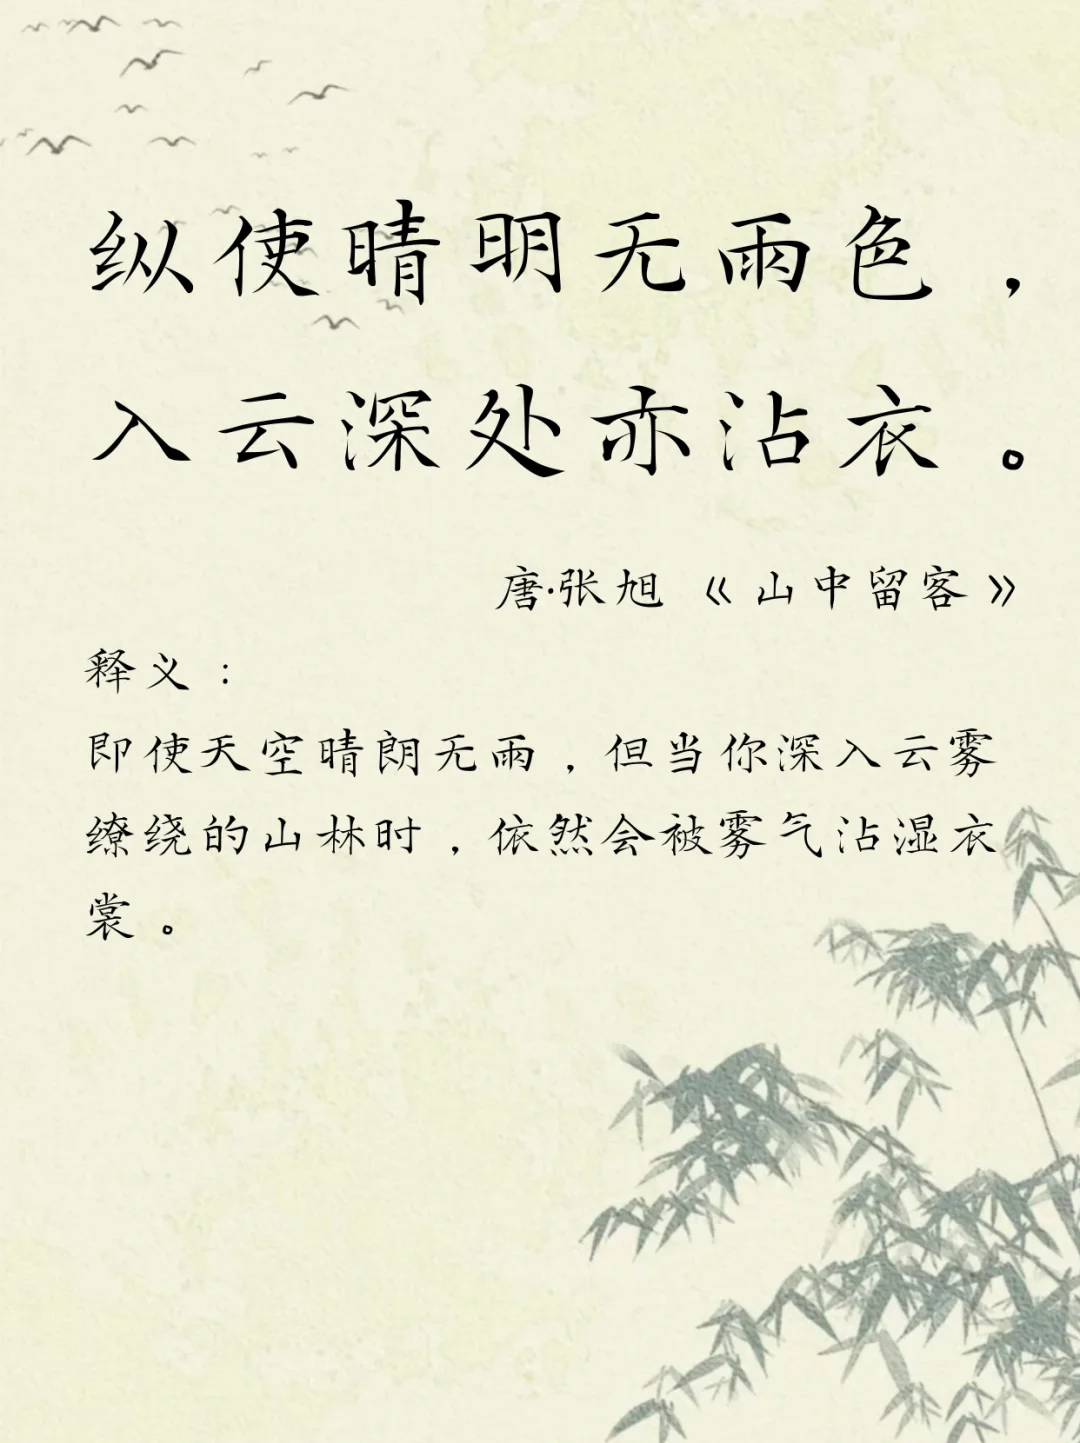 纵使晴明无雨色，
入云深处亦沾衣。
唐·张旭《山中留客》
释义：
即使天空晴朗无雨，但当你深入云雾
缭绕的山林时，依然会被雾气沾湿衣
裳。